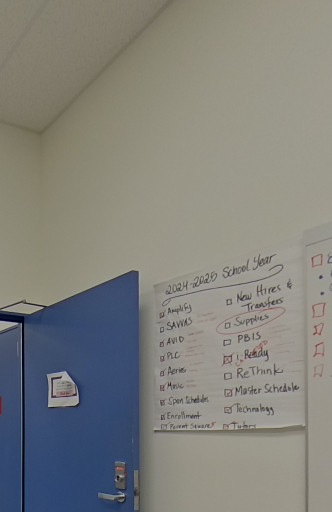 2024-2025 School Year
Amplify
SAVVAS
AVID
PLC
Aeries
Music
Span Schedules
Enrollment
Parent Square
New Hires &
Transfers
Supplies
PBIS
i-Ready
ReThink
Master Schedule
Technology
Tutors